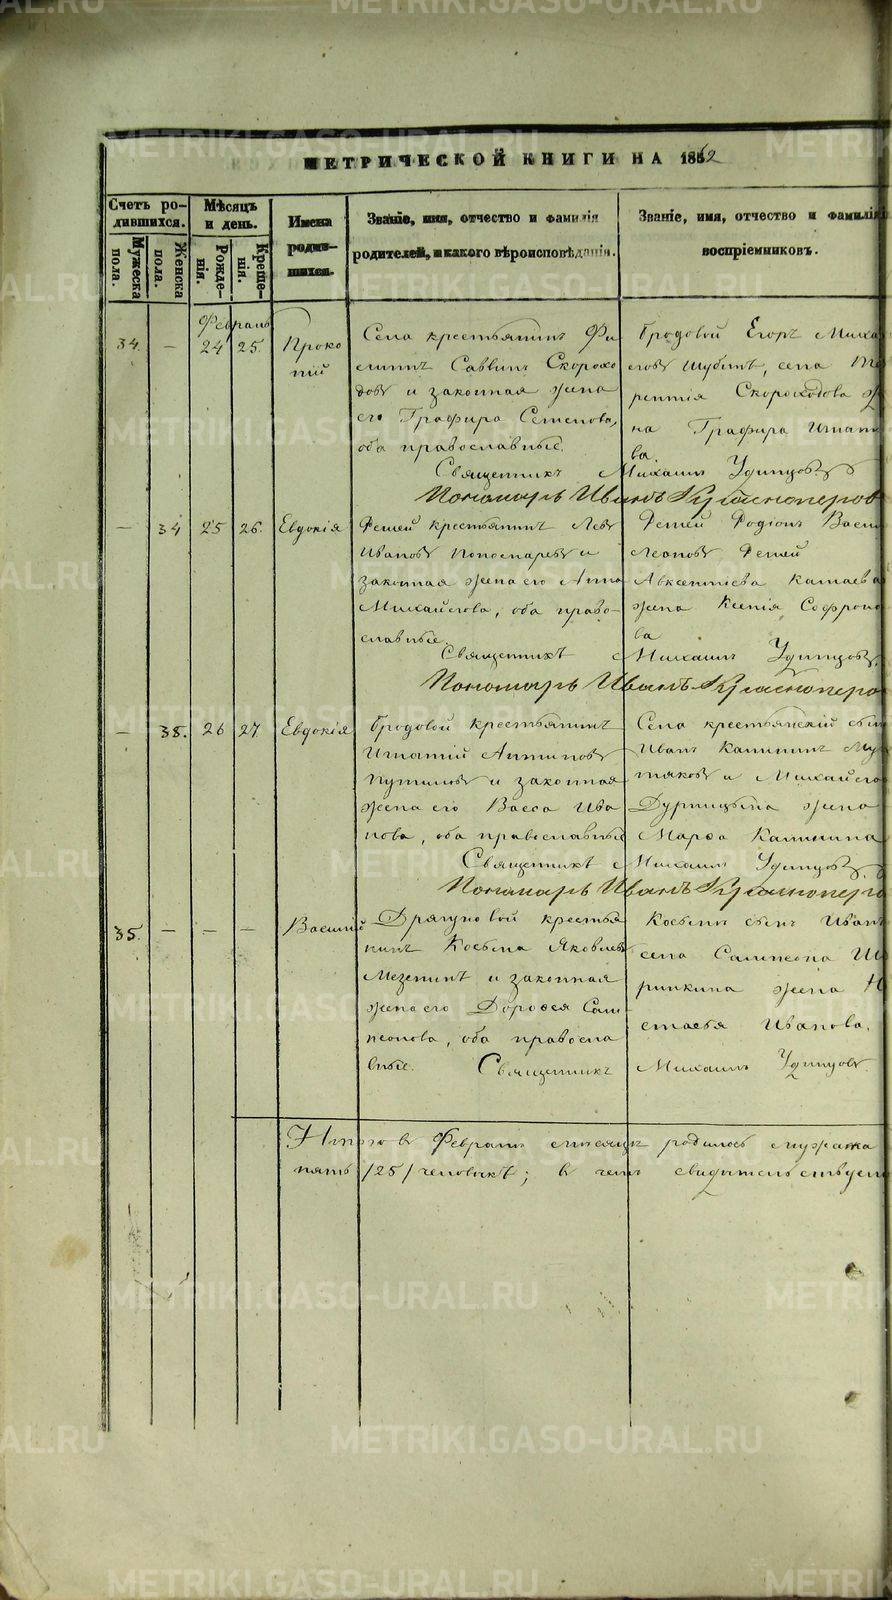 МЕТРИЧЕСКОЙ КНИГИ НА 1862
Счетъ ро-
дившихся.
Мужеска
пола.
Женска
пола.
Мѣсяцъ
и день.
Рожде-
нія.
Креще-
нія.
Имена
родив-
шихся.
Званіе, имя, отчество и фамилія
родителей, и какого вѣроисповѣданія.
Званіе, имя, отчество и фамилія
воспріемниковъ.
Февраль
34. — 24 25. Проко
пій
Села крестьянинъ Фи
липпъ Саввинъ Скорохо
довъ и законная жена
его Глафира Семенова,
оба православные.
Бродовой Егоръ Миха
Шубинъ, села
Скороходова
на Глафира Игнать
ва.
Священникъ Михаилъ Удинцовъ
Пономарь Иванъ Красноперов
— 34 25 26. Евдокія
крестьянинъ Левъ
Ивановъ Пономаревъ и
законная жена его Анна
Михайлова, оба право-
славные.
Родіонъ Васи
Авксентіева Катаева
жена Ксенія Софроно
ва
Священникъ Михаилъ Удинцовъ.
Пономарь Иванъ Красноперо
— 35. 26 27. Евдокія
Бродовой крестьянинъ
Игнатій Антиповъ
Путиловъ и законная
жена его Васса Ива
нова, оба православные
Села крестьянскій сынъ
Иванъ Калининъ
и Михайло
Дурницына жена
Марѳа Калинина
Священникъ Михаилъ Удинцовъ.
Пономарь Иванъ Красноперо
35. — — — Василій
крестья
нинъ Косьма Яковлевъ
Мезенинъ и законная
жена его Дороѳея Сам
псонова, оба правосла
вные.
Косьмы сынъ Иванъ
села Сампсона
жена
Иванова.
Священникъ Михаилъ Удинцовъ.
Итого въ Февралѣ мѣсяцѣ родилось мужска
пять /25/ человѣкъ; въ чемъ свидѣтельствуем
METRIKI.GASO-URAL.RU